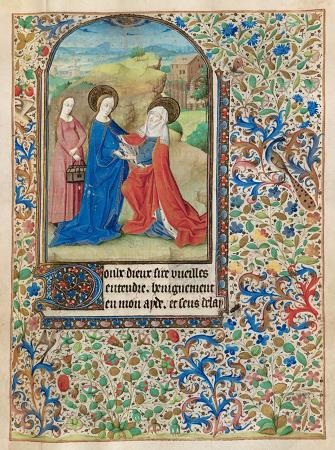 oulx dieux sire vueilles
entendre. benignement
en mon ayde. et sens delay